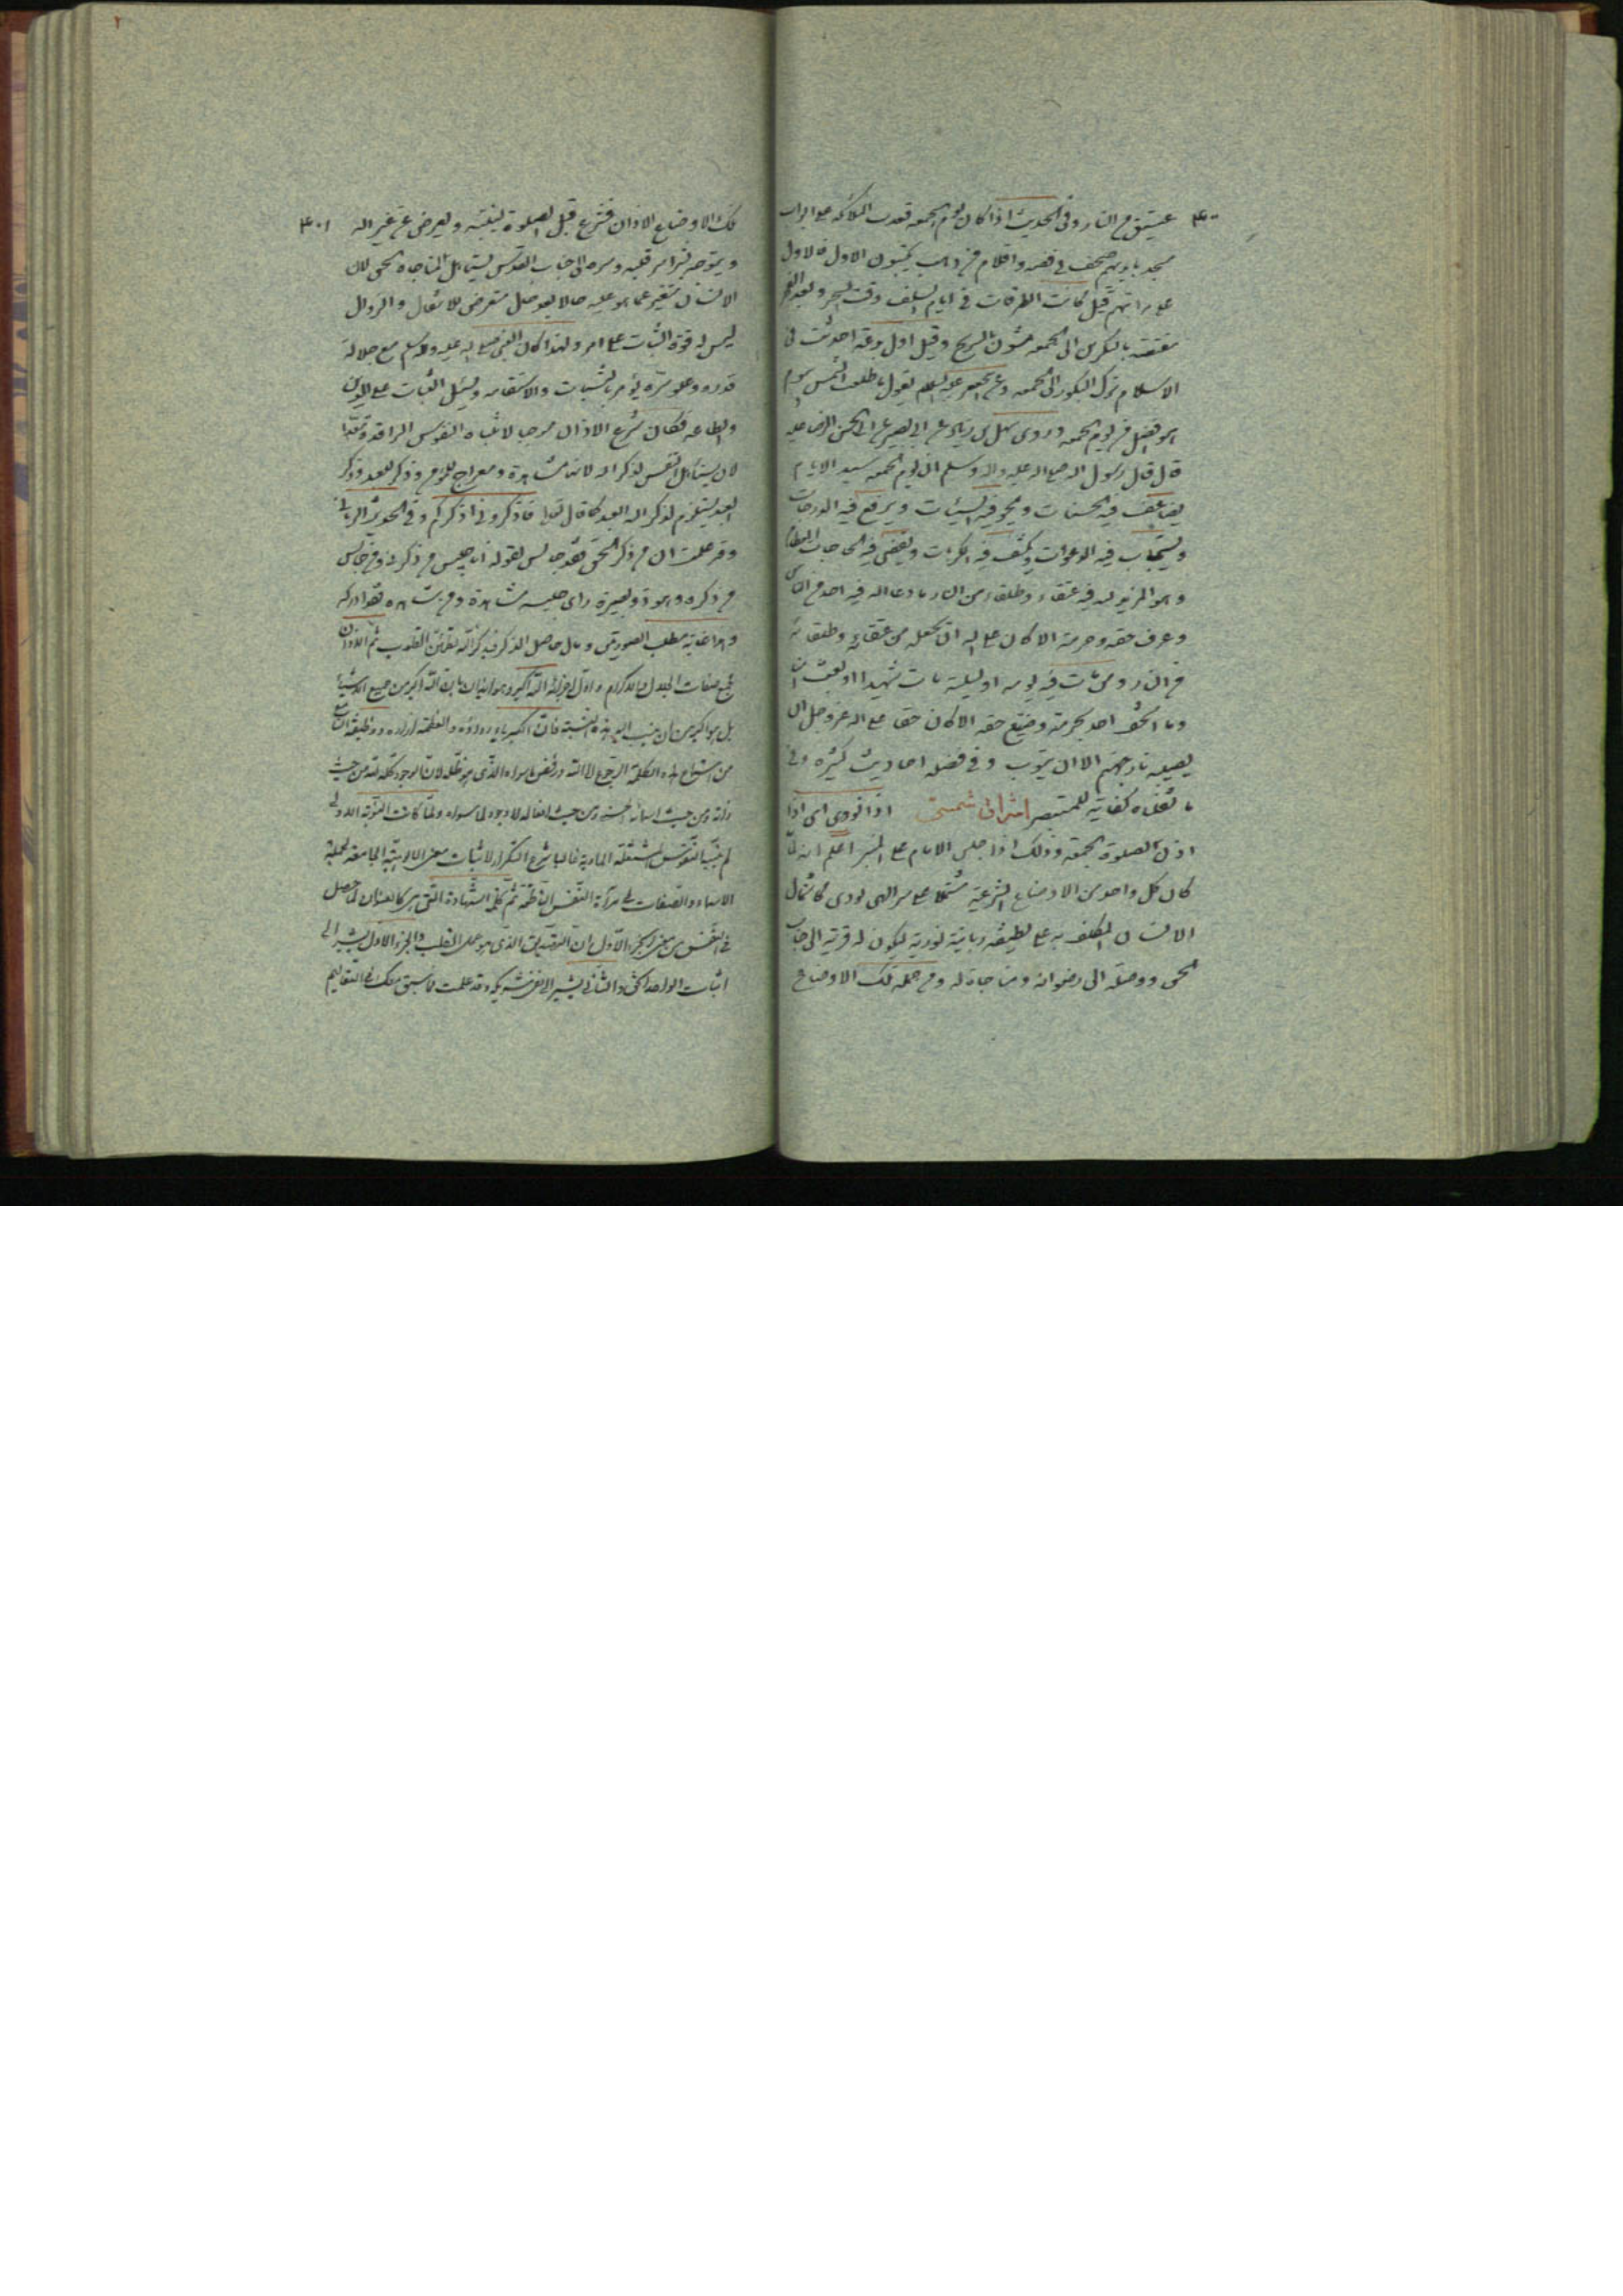 ٤٠٠ عتيق من النار وفى الحديث اذا كان يوم الجمعه قعدت الملائكه على ابواب
مسجد بايديهم صحف من فضه واقلام من ذهب يكتبون الاول فالاول
على مراتبهم قيل كانت الطرقات فى ايام السلف وقت السحر وبعد الفجر
مغتصه بالمبكرين الى الجمعه يمشون بالسرج وقيل اول بدعه احدثت فى
الاسلام ترك البكور الى الجمعه وعن ابى جعفر عليه السلم يقول ما طلعت الشمس بيوم
هو افضل من يوم الجمعه وروى سهل بن زياد عن ابى بصير عن ابى الحسن الرضا عليه
قال قال رسول الله صلى الله عليه واله وسلم ان يوم الجمعه سيد الايام
يضاعف فيه الحسنات ويمحو فيه السيئات ويرفع فيه الدرجات
ويستجاب فيه الدعوات ويكشف فيه الكربات ويقضى فيه الحاجات العظام
وهو المزيد لله فيه عتقاء وطلقاء من النار ما دعا الله فيه احد من الناس
وعرف حقه وحرمته الا كان على الله ان يجعله من عتقائه وطلقائه
من النار ومن مات فى يومه او ليلته مات شهيدا وبعث امنا
وما استخف احد بحرمته وضيع حقه الا كان حقا على الله عز وجل ان
يصليه نار جهنم الا ان يتوب وفى فضله احاديث كثيره وفى
ما نقلناه كفاية للمستبصر اشراق شمسى اذا نودى اى اذا
اذن لصلوة الجمعه وذلك اذا جلس الامام على المنبر اعلم انه لما
كان كل واحد من الاوضاع الشرعية مشتملا على سر الهى يودى كمال
الانسان المكلف به على لطيفه ربانية نورية ليكون له قربة الى جناب
الحق ووصلة الى رضوانه ومناجاة له ومن جملة تلك الاوضاع
٤٠١ تلك الاوضاع الاذان فشرع قبل الصلوة لينتبه ويعرض عن غير الله
ويتوجه بشراشر قلبه وسره الى جناب القدس ليستاهل لمناجاة الحق لان
الانسان متغير عما هو عليه حالا بعد حال متعرض للانتقال والزوال
ليس له قوة الثبات على امر ولهذا كان النبى صلى الله عليه واله وسلم مع جلالة
قدره وعلو سره يؤمر بالتثبات والاستقامه ويسئل الثبات على الدين
والطاعه فكان شرع الاذان موجبا لانتباه النفوس الراقدة
لان يستاهل النفس لذكر الله لانها مشاهدة ومعراج للمؤمن وذكر للعبد وذكر
العبد يستلزم لذكر الله العبد كما قال تعالى فاذكرونى اذكركم وفى الحديث الربانى
وقد علمت ان من ذكر الحق فقد جالس لقوله انا جليس من ذكرنى ومن جالس
من ذكره وهو ذو بصيرة راى جليسه مشاهدة ومن شاهده فقد ادركه
وهذا غاية مطلب الصديقين ومال حاصل الذكر فبذكر الله تطمئن القلوب ثم الاذان
يجمع صفات الجلال والاكرام واول اجزائه الله اكبر وهو ايذان بان الله اكبر من جميع الاشياء
بل هو اكبر من ان ينسب اليه بهذه النسبة فان الكبرياء رداؤه والعظمة ازاره ووظيفة السامع
من استماع هذه الكلمة الرجوع الى الله ورفض ما سواه الذى هو ظله لان الوجود كله لله من حيث
ذاته ومن حيث اسمائه الحسنى ومن حيث افعاله لا وجود لما سواه ولما كانت النوبة الاولى
لم ينبه النفوس المشتغلة المادية غالبا شرع التكرار لاثبات معنى الالوهية الجامعة لجملة
الاسماء والصفات فى مراة النفس الناطقة ثم كلمة الشهادة التى هى كالعنوان لما حصل
فى النفس من معنى الجزء الاول ان التصديق الذى هو عمل القلب والجزء الاول يشير الى
اثبات الواحد الحق والثانى يشير الى نفى شريكه وقد علمت مما سبق معك فى التقاليم